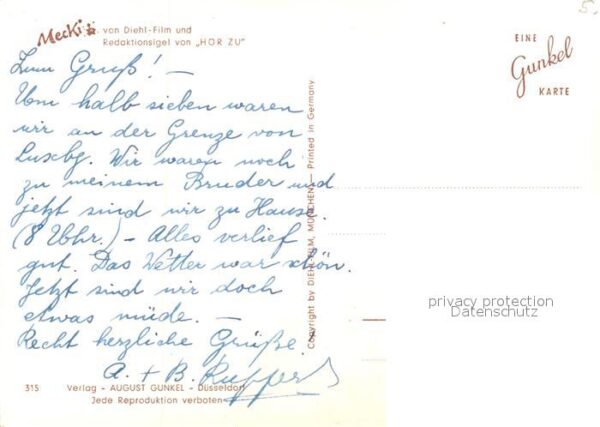 5.
Mecki von Diehl-Film und
Redaktionsigel von „HÖR ZU"
EINE
Gunkel
KARTE
Zum Gruß! –
Um halb sieben waren
wir an der Grenze von
Luxbg. Wir waren noch
zu meinem Bruder und
jetzt sind wir zu Hause.
(8 Uhr.) – Alles verlief
gut. Das Wetter war schön.
Jetzt sind wir doch
etwas müde. –
Recht herzliche Grüße.
A. + B. Ruppert
Copyright by DIEHL-FILM, MÜNCHEN – Printed in Germany
privacy protection
Datenschutz
315 Verlag - AUGUST GUNKEL - Düsseldorf
Jede Reproduktion verboten